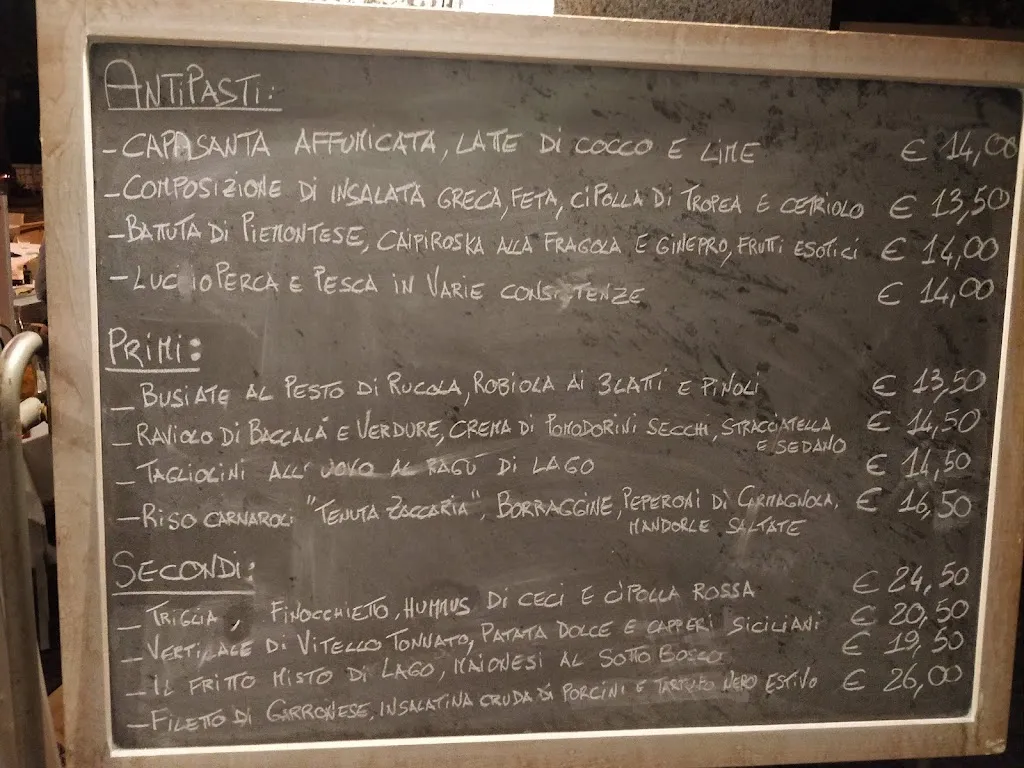 ANTIPASTI:
- CAPASANTA AFFUMICATA, LATTE DI COCCO E LIME € 14,00
- COMPOSIZIONE DI INSALATA GRECA, FETA, CIPOLLA DI TROPEA E CETRIOLO € 13,50
- BATTUTA DI PIEMONTESE, CAIPIROSKA ALLA FRAGOLA E GINEPRO, FRUTTI ESOTICI € 14,00
- LUCIOPERCA E PESCA IN VARIE CONSISTENZE € 14,00
PRIMI:
- BUSIATE AL PESTO DI RUCOLA, ROBIOLA AI 3 LATTI E PINOLI € 13,50
- RAVIOLO DI BACCALÀ E VERDURE, CREMA DI POMODORINI SECCHI, STRACCIATELLA € 14,50
E SEDANO
- TAGLIOLINI ALL'UOVO AL RAGÙ DI LAGO € 14,50
- RISO CARNAROLI "TENUTA ZACCARIA", BORRAGGINE, PEPERONI DI CARMAGNOLA, € 16,50
MANDORLE SALTATE
SECONDI:
- TRIGLIA, FINOCCHIETTO, HUMMUS DI CECI E CIPOLLA ROSSA € 24,50
- VERTICALE DI VITELLO TONNATO, PATATA DOLCE E CAPPERI SICILIANI € 20,50
- IL FRITTO MISTO DI LAGO, MAIONESI AL SOTTO BOSCO € 19,50
- FILETTO DI GARRONESE, INSALATINA CRUDA DI PORCINI E TARTUFO NERO ESTIVO € 26,00